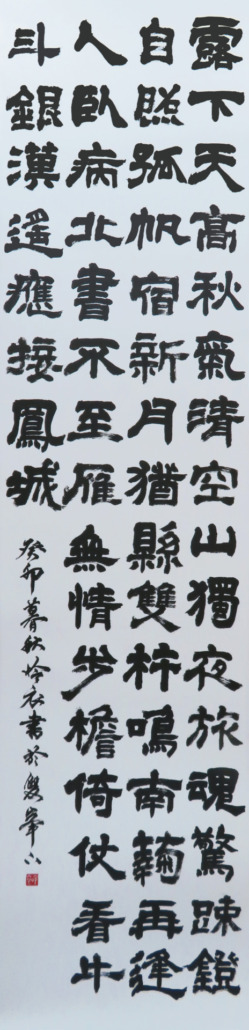 露下天高秋氣清空山獨夜旅魂驚踈鐙
自照孤帆宿新月猶縣雙杵鳴南蘜再逢
人臥病北書不至雁無情步檐倚仗看牛
斗銀漢遙應接鳳城
癸卯暮秋衣書於雙峯下